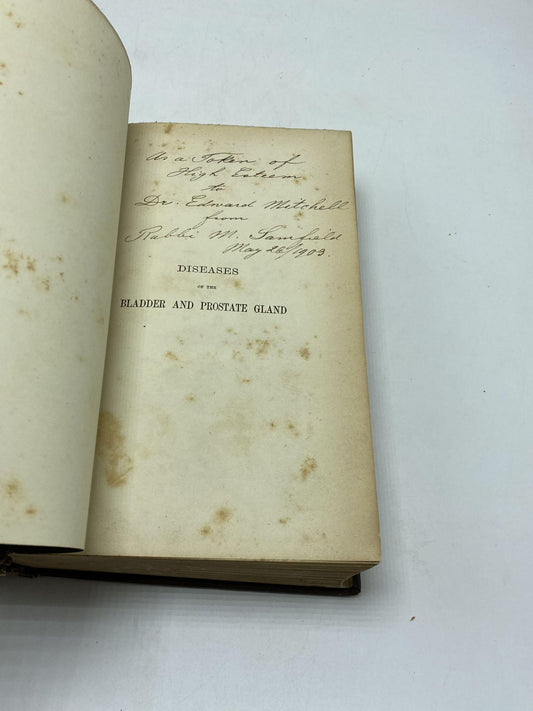 As a Token of
High Esteem
to
Dr. Edward Mitchell
from
Rabbi M. Samfield
May 26/1903.
DISEASES
OF THE
BLADDER AND PROSTATE GLAND